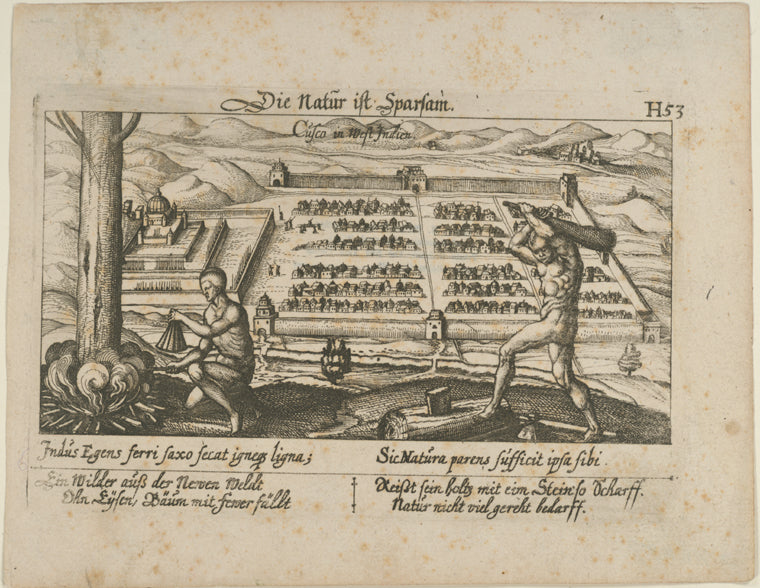 Die Natur ist Sparsam.
H53
Cusco in West Indien.
Indus Egens ferri saxo secat igneqz ligna;
Sic Natura parens sufficit ipsa sibi.
Ein Wilder auß der Newen Weldt
Ohn Eÿsen, Bäum mit fewer fällt
Reißt sein holtz mit eim Stein so Scharff.
Natur nicht viel gereht bedarff.